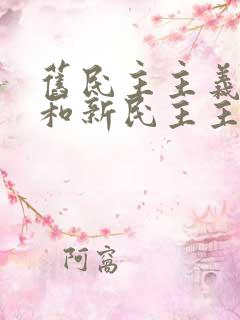 舊民主主義
和新民主主
阿窩